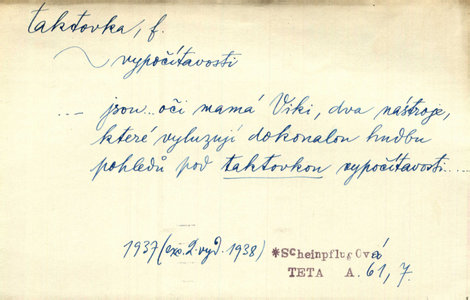 taktovka, f.
~ vypočítavosti
... jsou.. oči mamá Viki, dva nástroje,
které vyluzují dokonalou hudbu
pohledů pod taktovkou vypočítavosti...
1937 (exc. 2. vyd. 1938) *Scheinpflugová
TETA A. 61, 7.